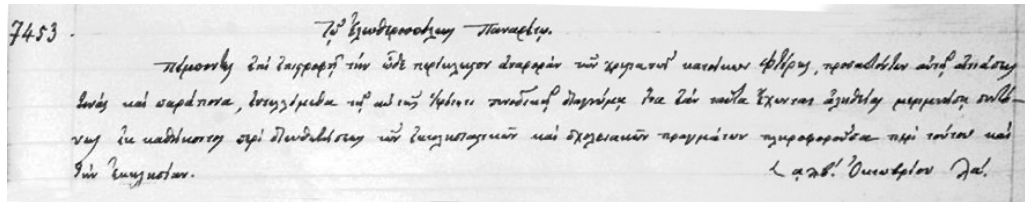 7453. Τῷ Ἐλευθερουπόλεως Παναρέτῳ.
Πέμποντες ἐπὶ ἐπιστροφῇ τὴν ὧδε περίκλειστον ἀναφορὰν τῶν χριστιανῶν κατοίκων Φτέρης, προσαπτόντων αὐτῇ αἰτιάσεις
τινὰς καὶ παράπονα, ἐντελλόμεθα τῇ αὐτῆς Ἱερότητι συνοδικῇ διαγνώμῃ ἵνα ἐὰν ταῦτα ἔχωνται ἀληθείας μεριμνήσῃ συντό-
νως ἐκ καθήκοντος περὶ διευθετήσεως τῶν ἐκκλησιαστικῶν καὶ σχολειακῶν πραγμάτων πληροφοροῦσα περὶ τούτου καὶ
τὴν Ἐκκλησίαν. Ὀκτωβρίου λα΄.